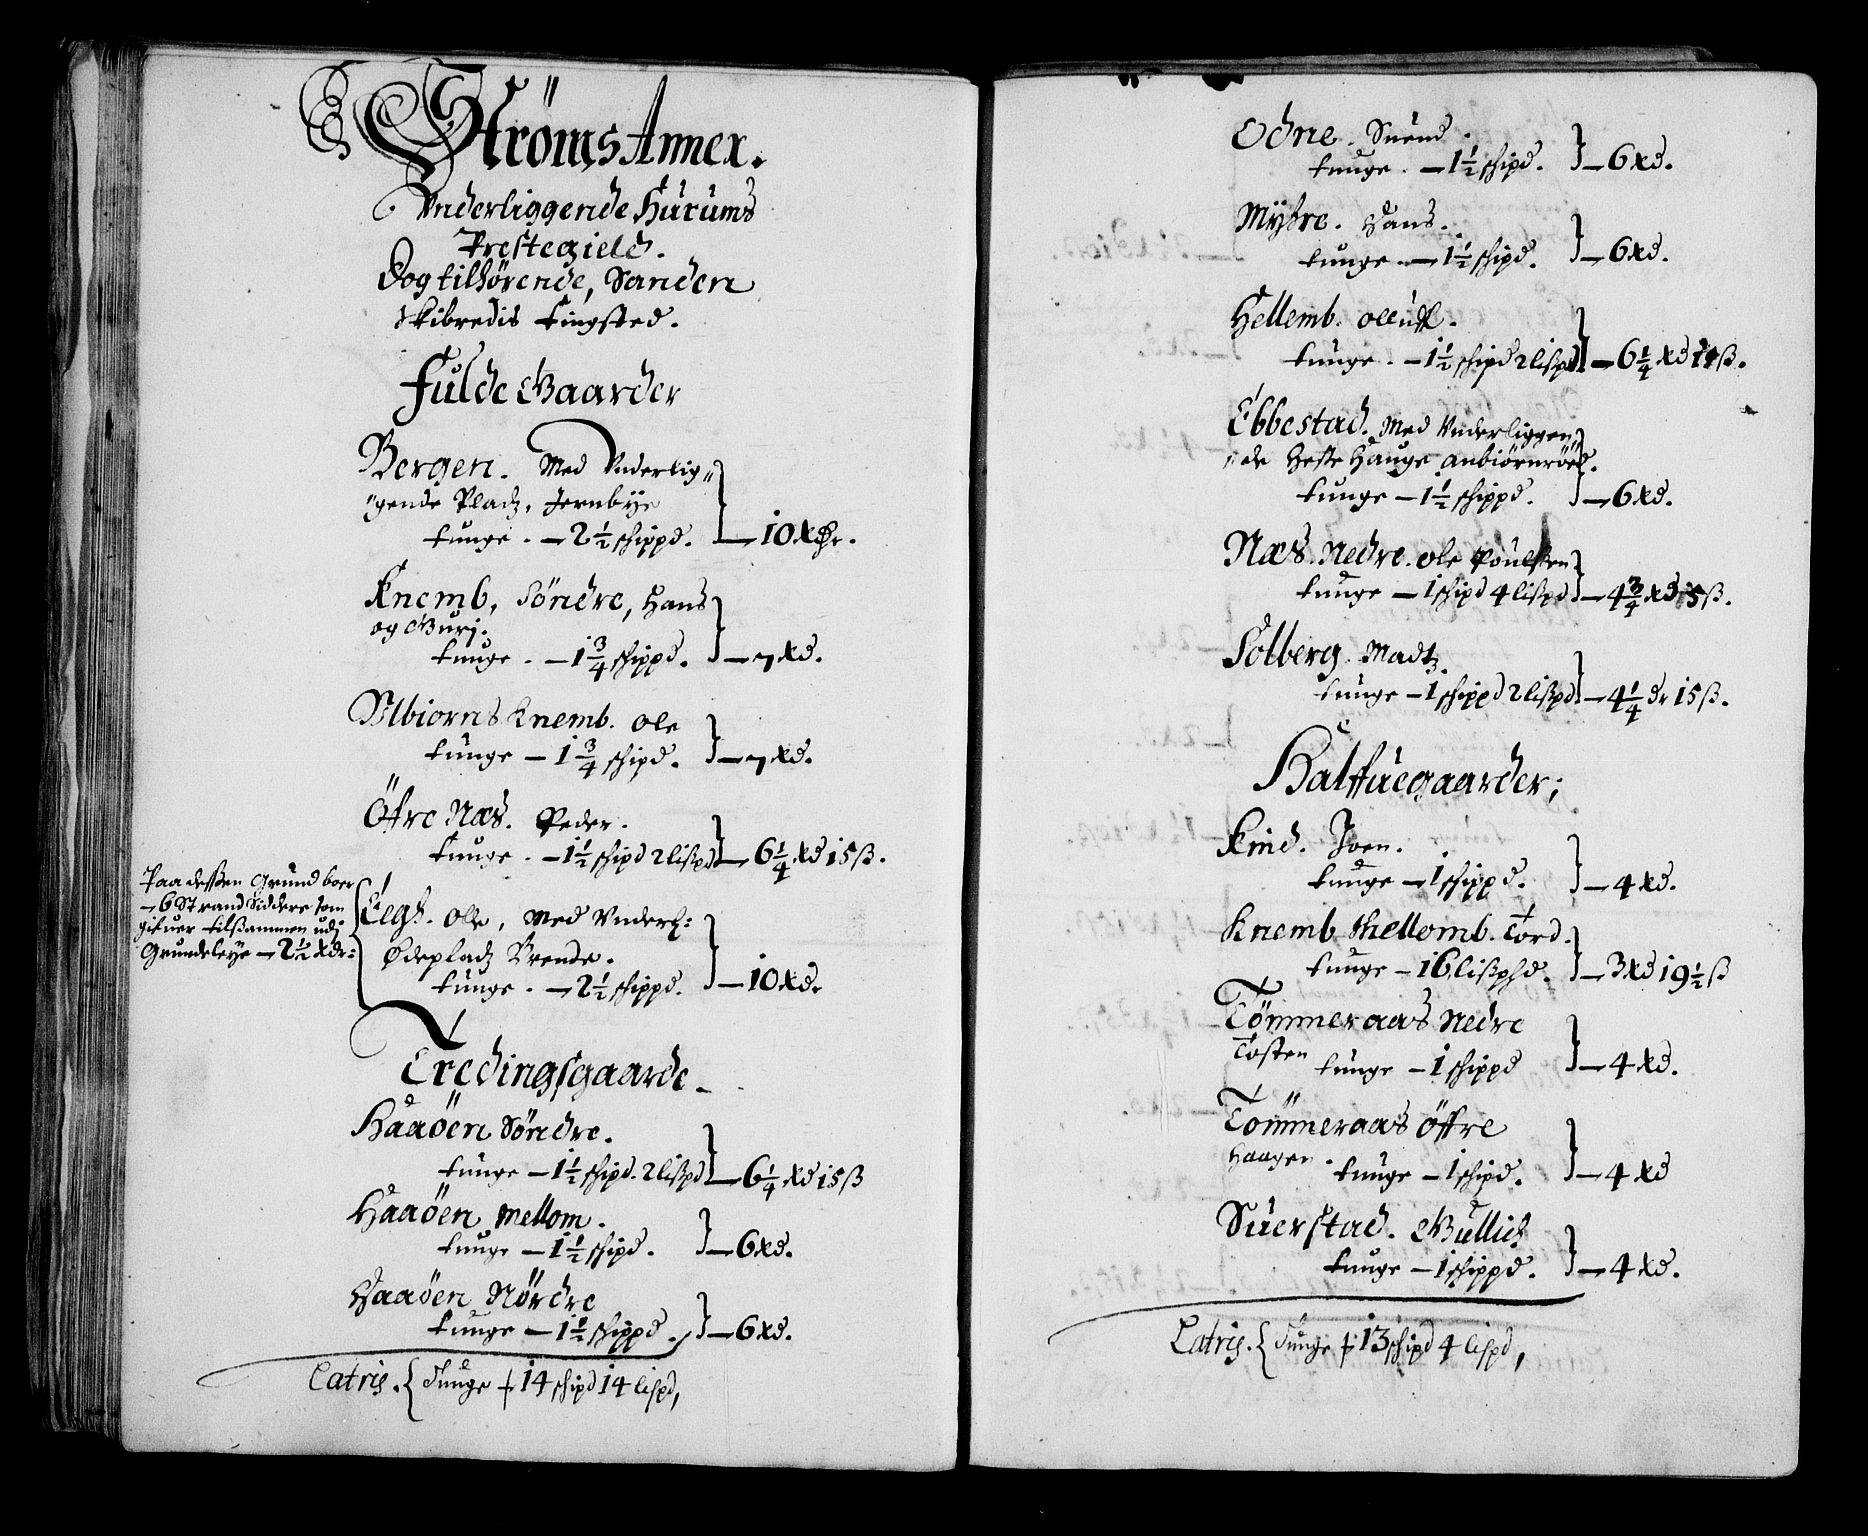 Ströms Annex.
Vnderliggende Hürums
Prestegield.
Dog tilhörende, Sanden
skibredis tingsted.
Fulde Gaarder
Bergen. Med Vnderlig„
„gende Pladz, Jernbÿe
tunge. — 2½ schippd. — 10 xdr.
Knemb, Söndre, Hans
og Gurj.
tunge. — 1¾ schippd. — 7 xd.
Albiorns Knemb. Ole
tunge — 1¾ schipd. — 7 xd.
Öfre Næs. Peder.
tunge. — 1½ schipd 2 lißpd — 6¼ xd 15 ß.
Paa desßen Grund boer
— 6 Strand Siddere som
gifuer tilsammen udj
Grundeleÿe — 2½ xdr:
Elgs. Olle, Med Vnderl:
Ødepladz Brende.
tunge. — 2½ schippd. — 10 xd.
Tredingsgaarde
Haaöen Söndre.
tunge — 1½ schipd. 2 lißpd — 6¼ xd 15 ß
Haaöen Mellom.
tunge — 1½ schipd. — 6 xd.
Haaöen Nördre
tunge — 1½ schippd. — 6 xd.
Latris. { Tunge 14 schipd 14 lispd,
Odne. Suend
tunge. — 1½ schipd. — 6 xd.
Mÿhre. Hans.
tunge. — 1½ schipd. — 6 xd.
Hellemb. Olluff.
tunge. — 1½ schipd 2 lißpd — 6¼ xd 15 ß.
Ebbestad. Med Vnderliggen„
„de Heste Hauge Anbiörnröed.
tunge — 1½ schippd. — 6 xd.
Næs. Nedre. Ole Poulsßen
tunge — 1 schipd 4 lißpd — 4¾ xd 5 ß.
Solberg. Madtz.
tunge — 1 schippd 2 lißpd — 4¼ dr 15 ß.
Halffuegaarder;
Kind. Joen.
tunge — 1 schippd. — 4 xd.
Knemb Mellomb. Tord.
tunge — 16 lißphd. — 3 xd 19½ ß
Tömmeraas Nedre
Tosten tunge — 1 schippd — 4 xd.
Tömmeraas Öffre
Haagen. tunge — 1 schipd. — 4 xd
Suerstad. Gullich
tunge — 1 schippd. — 4 xd.
Latris. { Tunge 13 schipd 4 lispd,